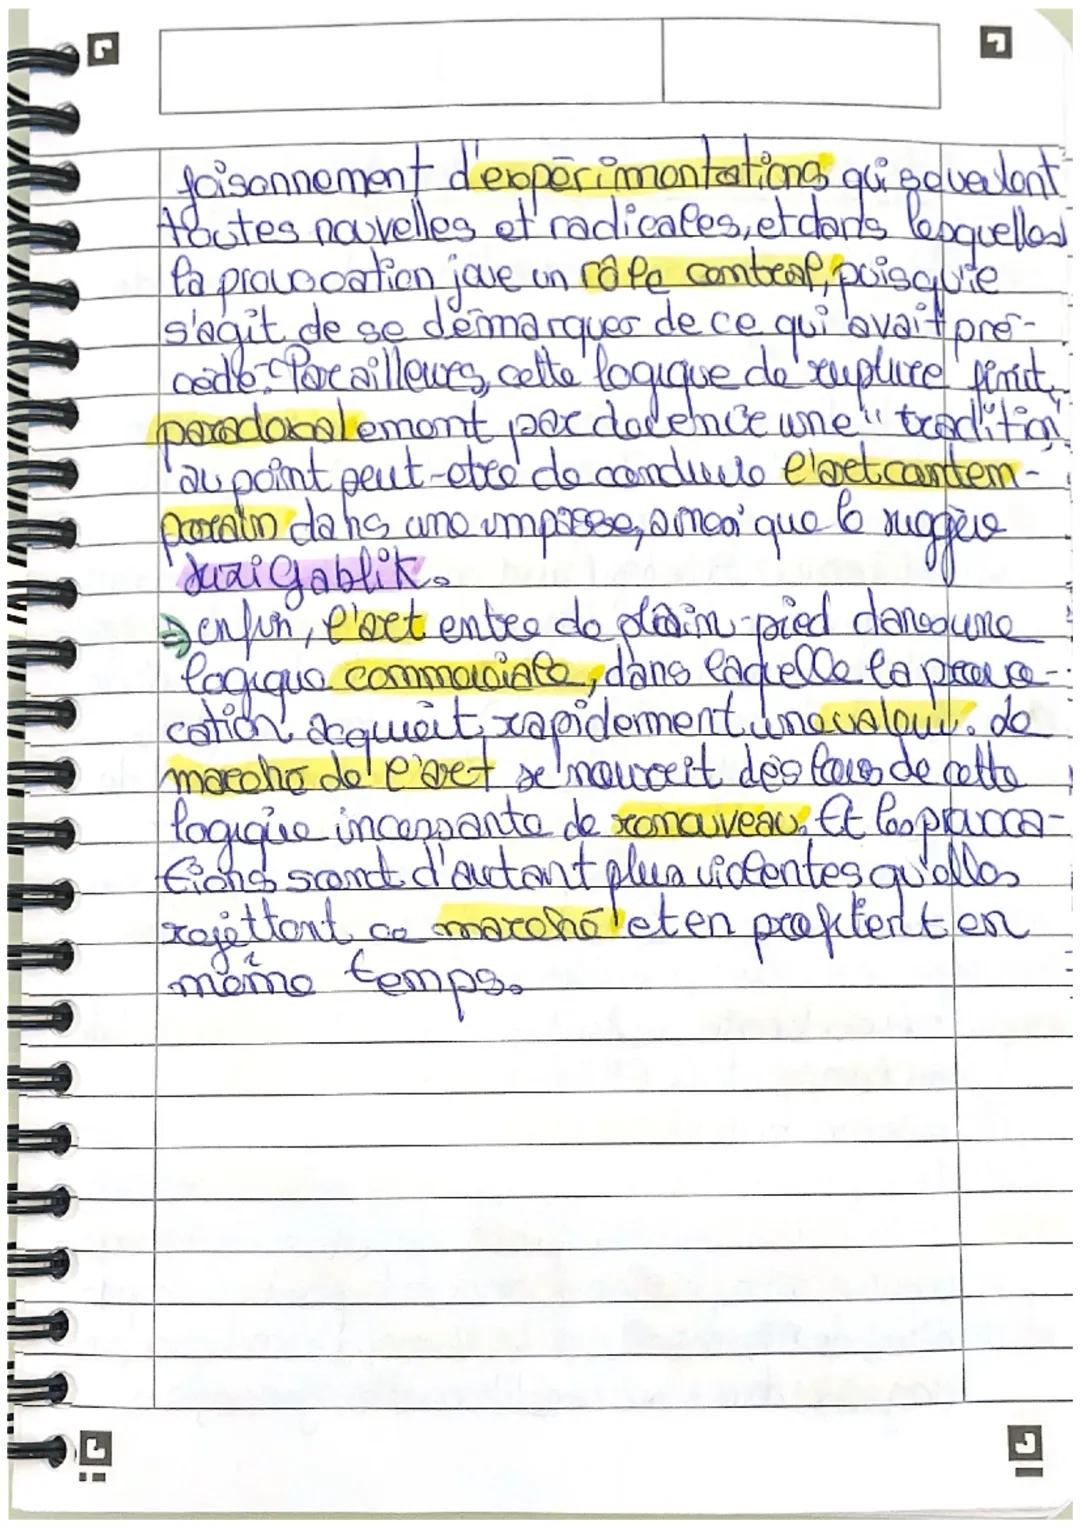 foisonnement d'expérimentations qui se veulent
toutes nouvelles et radicales, et dans lesquelles
la provocation joue un rôle central, puisqu'il
s'agit de se démarquer de ce qui avait pré-
cédé. Par ailleurs, cette logique de rupture finit,
paradoxalement par devenir une "tradition"
au point peut-etre de conduire l'art contem-
porain dans une impasse, ainsi que le suggère
Suzi Gablik.
⇒ enfin, l'art entre de plain-pied dans une
logique commerciale, dans laquelle la provo-
cation acquiert rapidement une valeur. Le
marché de l'art se nourrit dès lors de cette
logique incessante de renouveau. Et les provoca-
tions sont d'autant plus violentes qu'elles
rejettent ce marché et en profitent en
même temps.